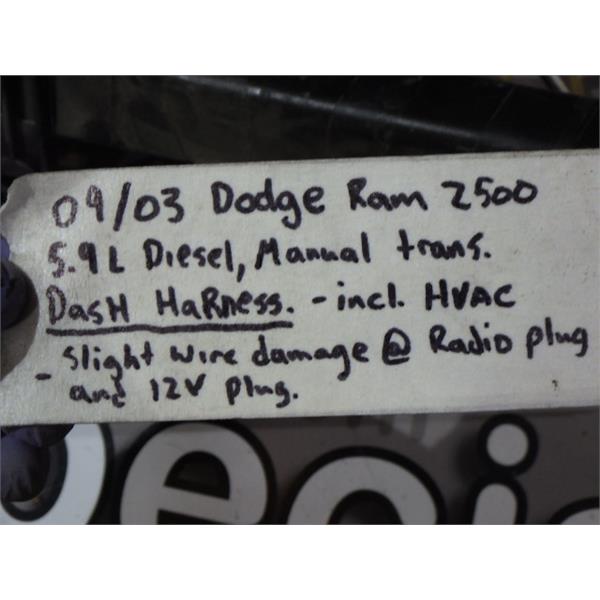 09/03 Dodge Ram 2500
5.9L Diesel, Manual trans.
DasH HaRness. - incl. HVAC
- Slight wire damage @ Radio plug
and 12V plug.